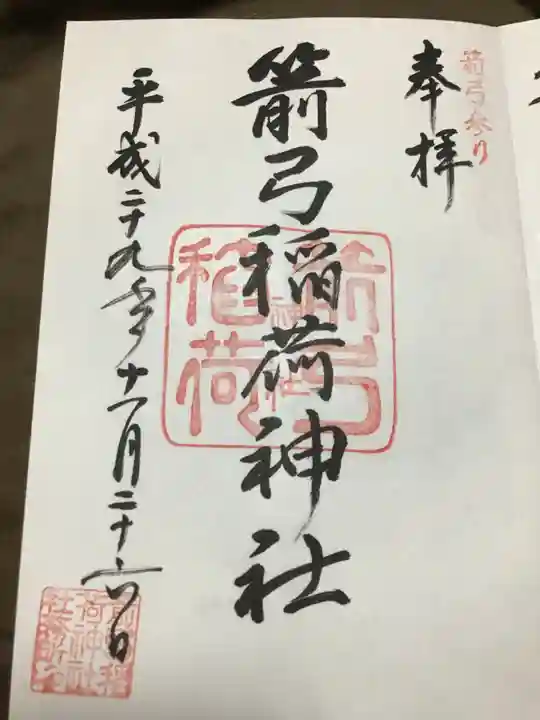 箭弓参り
奉拝
箭弓稲荷神社
箭弓稲荷神社
平成二十九年十一月二十六日